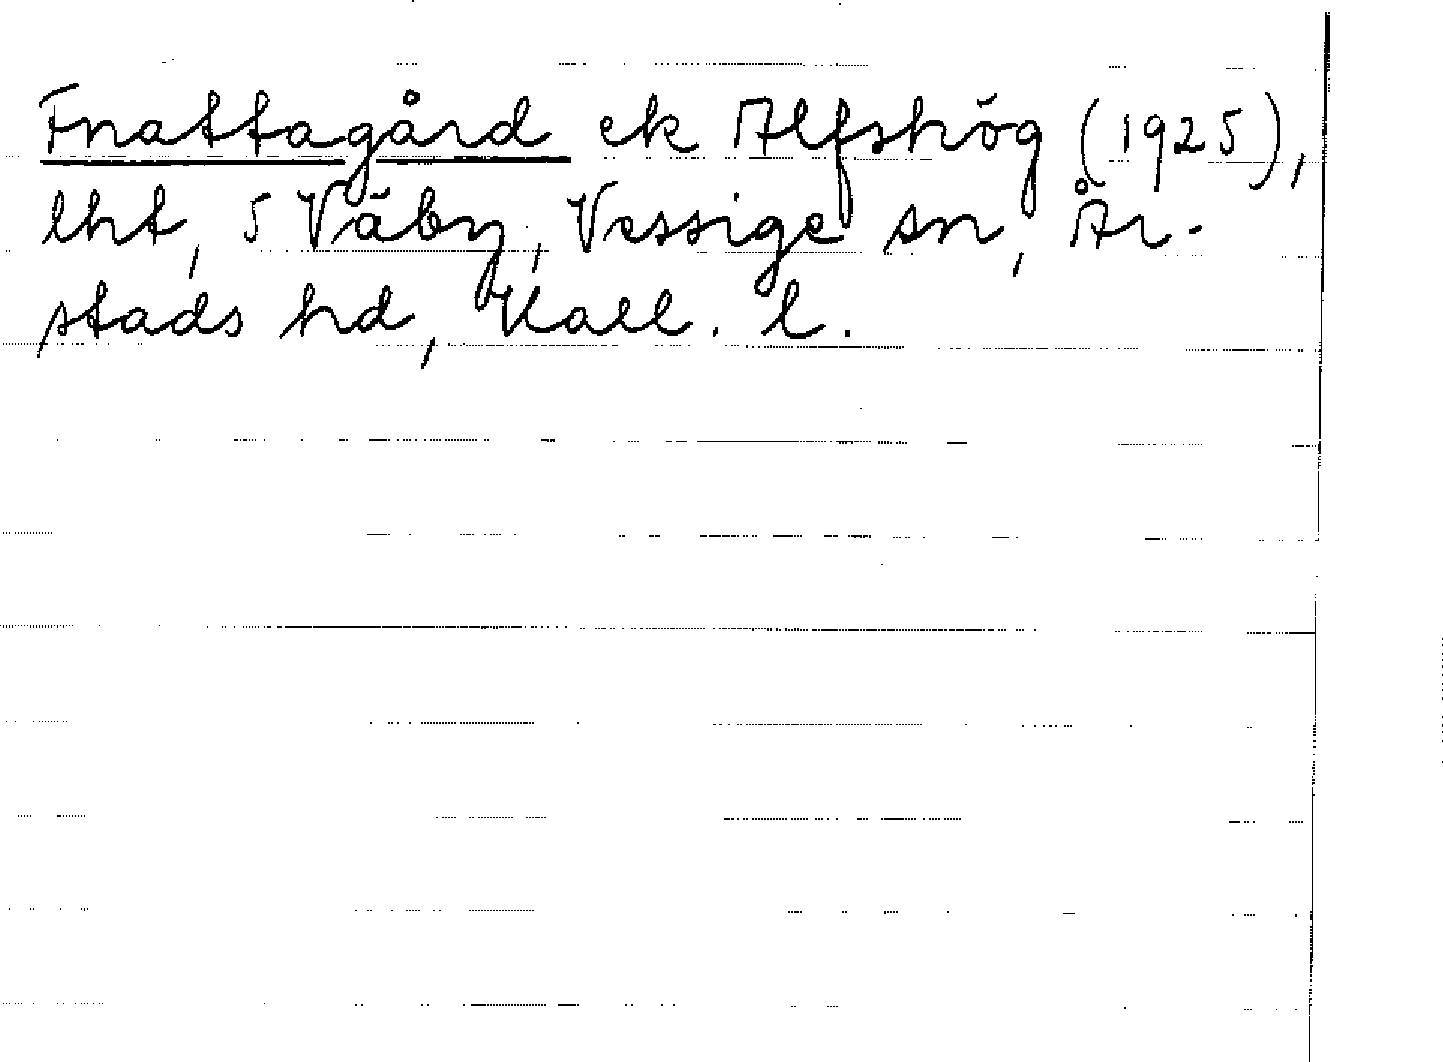 Fnattagård ek Alfshög (1925),
lht, 5 Väby, Vessige sn, År-
stads hd, Hall. l.